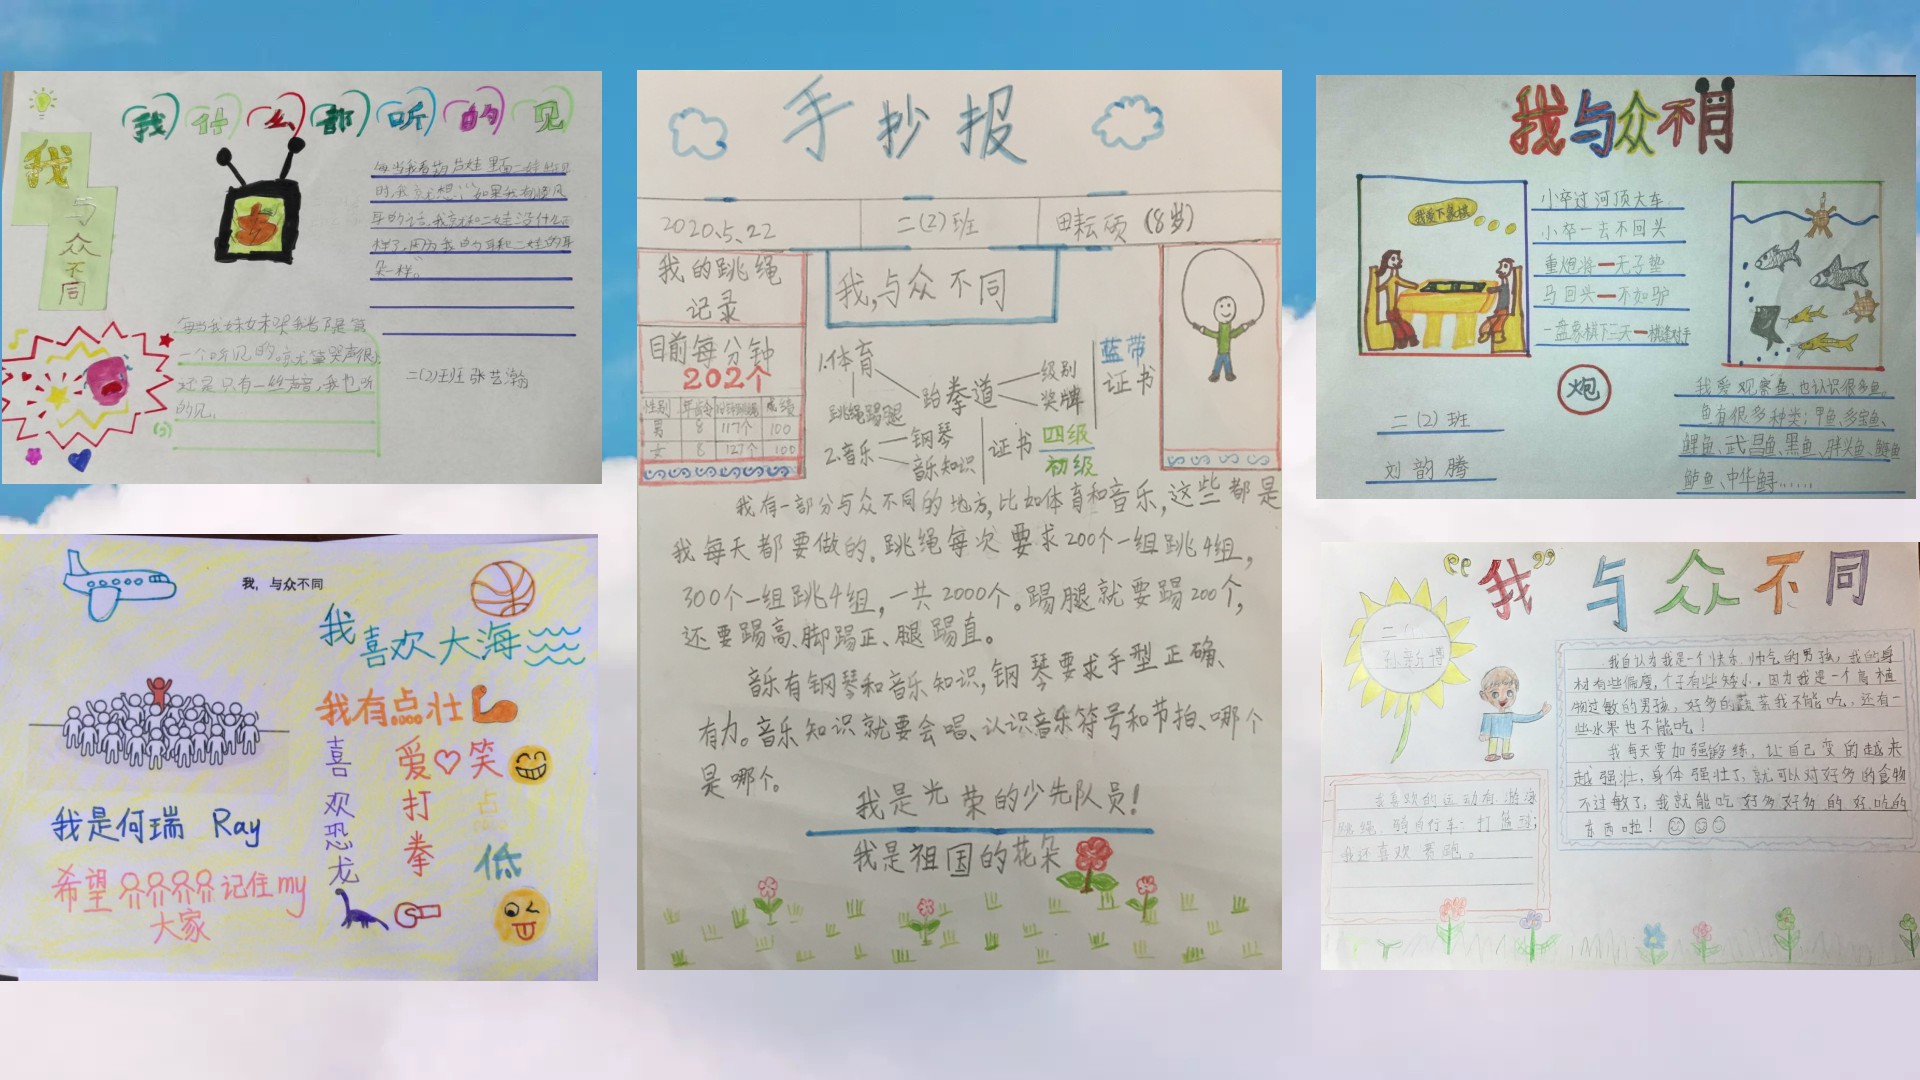 我什么都听的见
我
与
众
不
同
每当我看葫芦娃里面二娃的
时,我就想:"如果我有顺风
耳的话,我就和二娃没什么
样了,因为我的耳和二娃的耳
朵一样。"
一个听见的,
还是只有一丝声音,我也听
的见。
二(2)班
手抄报
2020.5.22
二(2)班
田耘硕(8岁)
我的跳绳
记录
目前每分钟
202个
性别 年龄 成绩
男 8 117个 100
女 8 127个 100
我,与众不同
1.体育
跳绳踢腿
跆拳道
级别
奖牌
蓝带
证书
2.音乐
钢琴
音乐知识
证书
四级
初级
我有一部分与众不同的地方,比如体育和音乐,这些都是
我每天都要做的。跳绳每次要求200个一组跳4组,
300个一组跳4组,一共2000个。踢腿就要踢200个,
还要踢高、脚踢正、腿踢直。
音乐有钢琴和音乐知识,钢琴要求手型正确、
有力。音乐知识就要会唱、认识音乐符号和节拍、哪个
是哪个。
我是光荣的少先队员!
我是祖国的花朵
我与众不同
我要下象棋
小卒过河顶大车
小卒一去不回头
重炮将一无子垫
马回头一不如驴
一盘象棋下三天一棋逢对手
炮
二(2)班
刘韵腾
我爱观察鱼,也认识很多鱼。
鱼有很多种类:甲鱼、多宝鱼、
鲤鱼、武昌鱼、黑鱼、胖头鱼、鲢鱼
鲈鱼、中华鲟……
我,与众不同
我喜欢大海
我有点壮
喜欢恐龙
爱♡笑
打拳
点低
我是何瑞 Ray
希望 记住my
大家
"我"与众不同
二
孙新博
我自认为我是一个快乐、帅气的男孩,我的身
材有些偏瘦,个子有些矮小。因为我是一个高植
物过敏的男孩,好多的蔬菜我不能吃,还有一
些水果也不能吃!
我每天要加强锻练,让自己变的越来
越强壮,身体强壮了,就可以对好多的食物
不过敏了,我就能吃好多好多的好吃的
东西啦!
我喜欢的运动有:游泳
跳绳、骑自行车、打篮球;
我还喜欢赛跑。